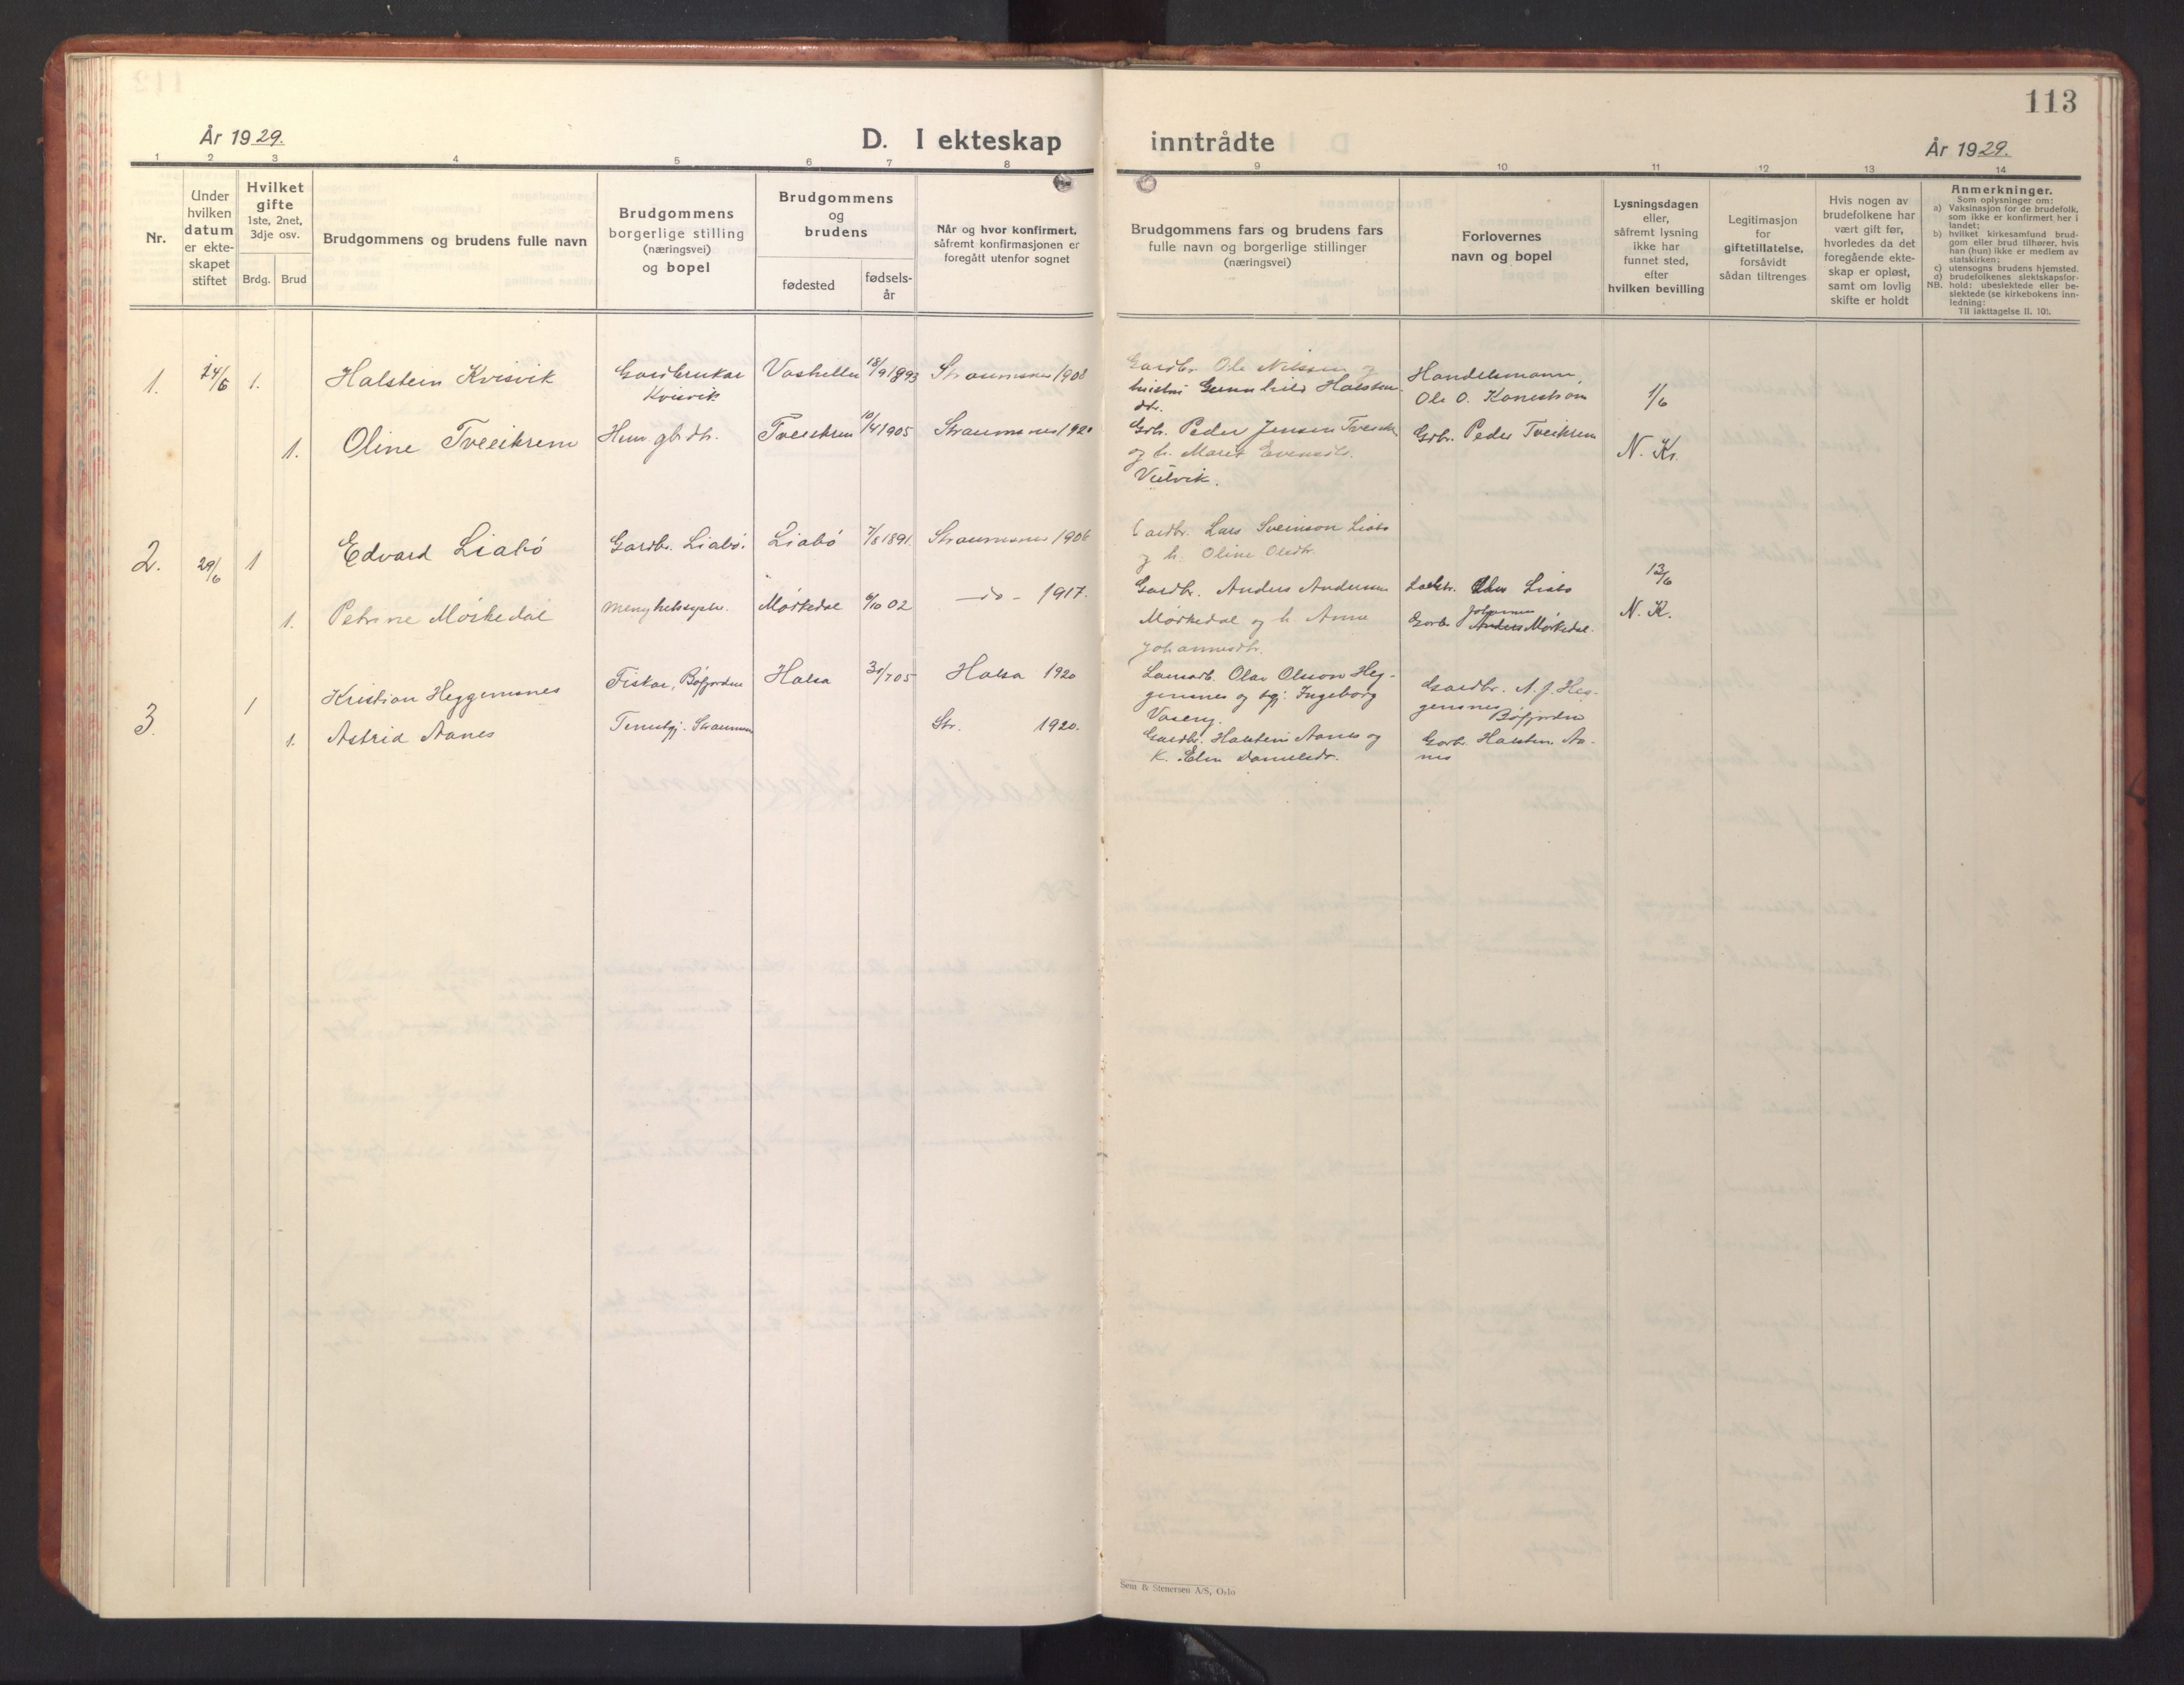 113
År 1929.
D. I ekteskap inntrådte
År 1929.
1 2 3 4 5 6 7 8 9 10 11 12 13 14
Nr.
Under
hvilken
datum
er ekte-
skapet
stiftet
Hvilket
gifte
1ste, 2net,
3dje osv.
Brdg. Brud
Brudgommens og brudens fulle navn
Brudgommens
borgerlige stilling
(næringsvei)
og bopel
Brudgommens
og
brudens
fødested
fødsels-
år
Når og hvor konfirmert,
såfremt konfirmasjonen er
foregått utenfor sognet
Brudgommens fars og brudens fars
fulle navn og borgerlige stillinger
(næringsvei)
Forlovernes
navn og bopel
Lysningsdagen
eller,
såfremt lysning
ikke har
funnet sted,
efter
hvilken bevilling
Legitimasjon
for
giftetillatelse,
forsåvidt
sådan tiltrenges
Hvis nogen av
brudefolkene har
vært gift før,
hvorledes da det
foregående ekte-
skap er opløst,
samt om lovlig
skifte er holdt
Anmerkninger.
Som oplysninger om:
a) Vaksinasjon for de brudefolk,
som ikke er konfirmert her i
landet;
b) hvilket kirkesamfund brud-
gom eller brud tilhører, hvis
han (hun) ikke er medlem av
statskirken;
c) utensogns brudens hjemsted.
d) brudefolkenes slektskapsfor-
NB. hold: ubeslektede eller be-
slektede (se kirkebokens inn-
ledning:
Til iakttagelse II. 10).
1. 14/6 1. Halstein Kvisvik
Gardbrukar
Kvisvik
18/9 1893 Straumsnes 1908
Gardbr. Ole Nilssen og
hustru Gunnhild Halsten-
dtr.
Handelsmann
Ole O. Kanestrøm
1/6
1. Oline Tveeikrem
10/4 1905
Gdb. Peder Jensen
og h. Marit Evensdtr.
Gdbr. Peder Tveikrem
N. Kr.
2. 29/6 1 Edvard Liabö
Gardbr. Liabö.
Liabö 7/8 1891. Straumsnes 1906
Gardbr. Lars Sveinson Liabö
og h. Oline Olsdtr.
13/6
1. Petrine Mörkedal
Mörkedal 02 - do - 1917.
Gardbr. Anders Andersen
Mörkedal og h. Anne
Johannesdtr.
Liabö
Gardb. Johannes
Anders Mörkedal.
N. K.
3. 1 Kristian Heggemsnes
Fiskar, Böfjorden
Halsa 30/7 05 Halsa 1920
Olav Olsson Heg-
gemsnes og Ingeborg
Gardbr. A. J. Heg-
gemsnes
Böfjorden
1. Astrid Aanes
Str. 1920.
Gardbr. Halstein Aanes og
K. Elen Danielsdr.
Gardb. Halstein Aa-
nes
Sem & Stenersen A/S, Oslo